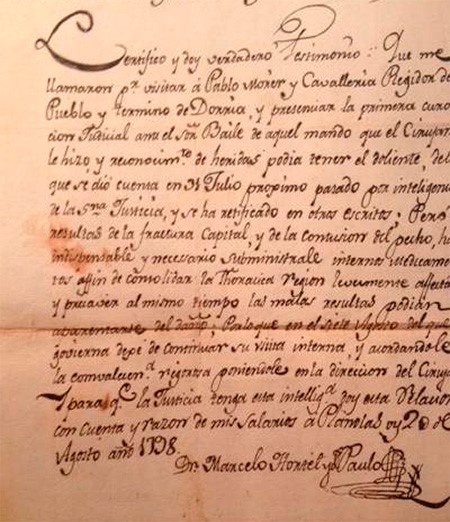 Certifico y doy verdadero Testimonio: Que me
llamaron pª. visitar á Pablo Moner y Cavalleria Regidor de
Pueblo y termino de Dorria, y presenciar la primera cura
cion Judicial ante el Sʳ. Baile de aquel mando que el Ciruján
le hizo y reconocimᵗᵒ de heridas podia tener el doliente, del
que se dió cuenta en 31 Julio proximo pasado pra inteligenc
de la Sʳⁱᵃ Justicia, y se ha ratificado en otros escritos; Pero
resultas de la fractura Capital, y de la contusion del pecho, ha
indispensable y necesario subministrale internos medicame
tos affin de consolidar la Thoracica region levemente affecta
y precaver al mismo tiempo las malas resultas podian
del Por lo que en el siete Agosto del que
govierna dexé de continuar su visita interna, y acordandole
la combalecenª. regresa poniendole en la direccion del Ciruja
Y para qᵉ. la Justicia tenga esta inteligª. doy esta Relacion
con Cuenta y razon de mis Salarios á Planolas oy 20 de
Agosto año 1798.
Dʳ. Marcelo y Paulo